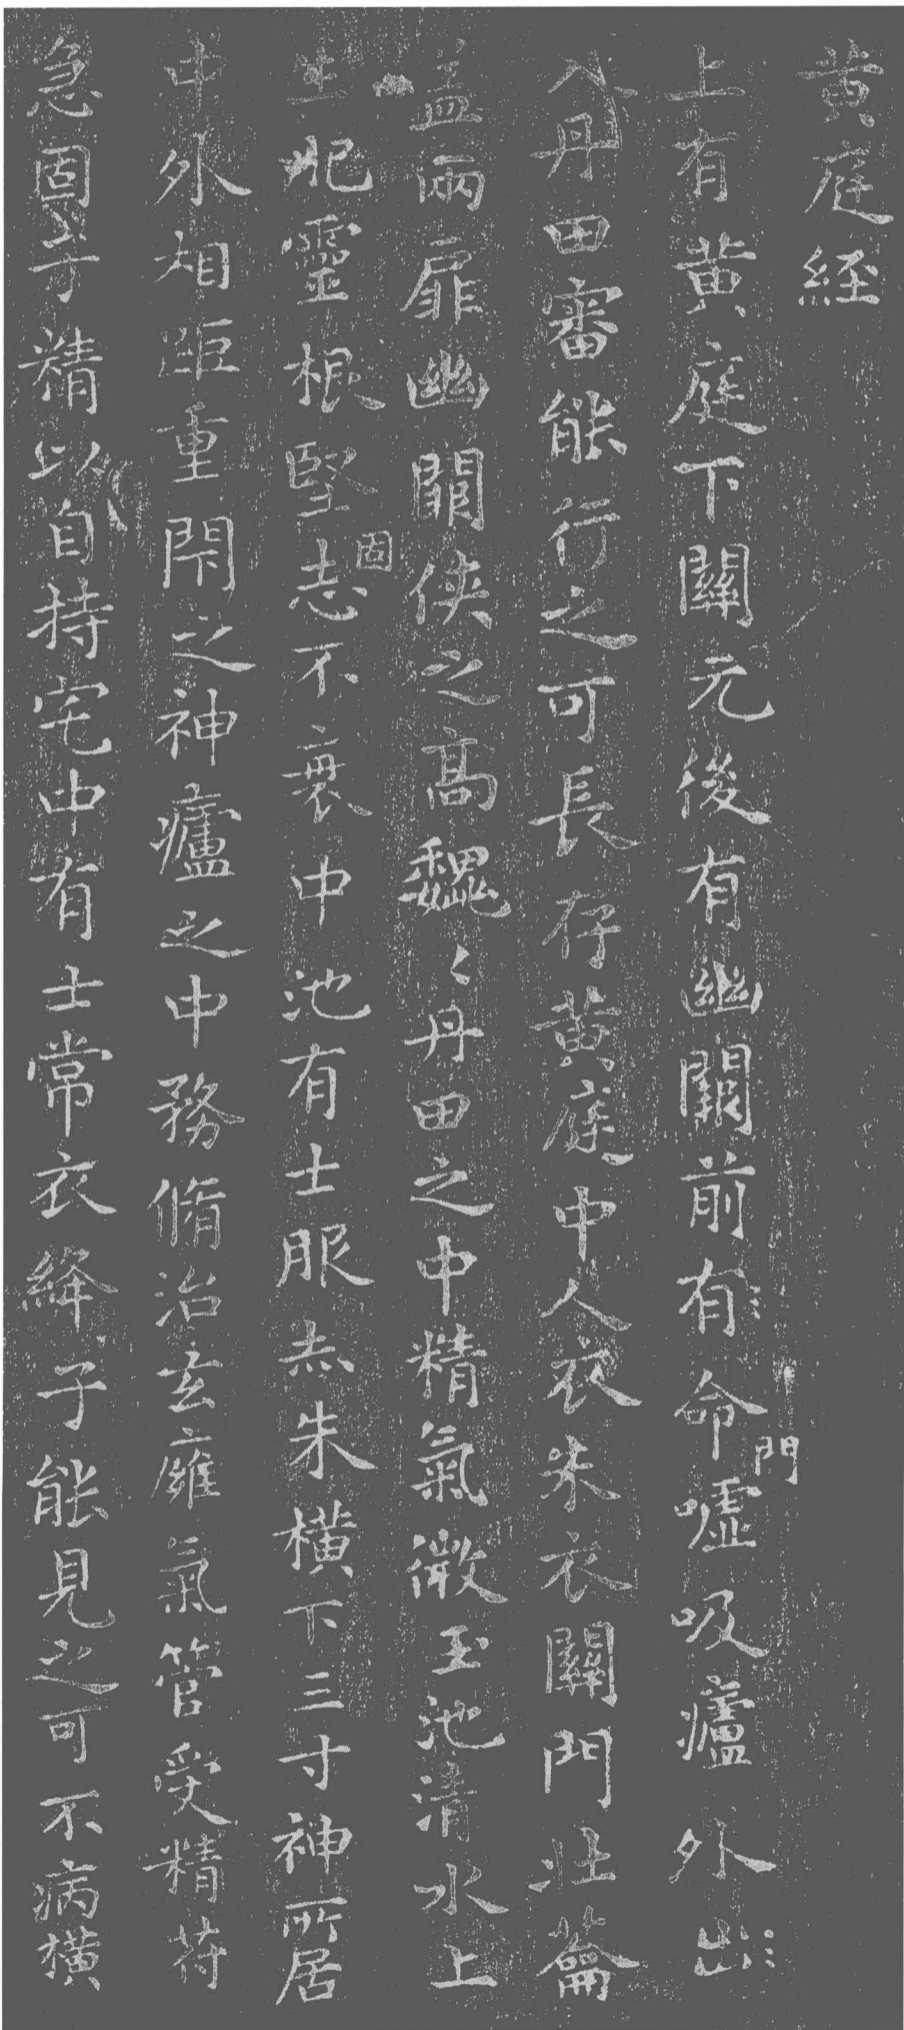 黄庭経
上有黄庭下關元後有幽闕前有命門噓吸廬外出
入丹田審能行之可長存黄庭中人衣朱衣關門壮籥
盖兩扉幽闕俠之高魏〻丹田之中精氣微玉池清水上
生肥靈根堅固志不衰中池有士服赤朱横下三寸神所居
中外相距重閇之神廬之中務脩治玄癰氣管受精符
急固子精以自持宅中有士常衣絳子能見之可不病横